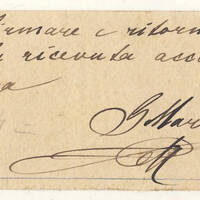 irmare e ritorn
ricevuta acc
a
G Mar